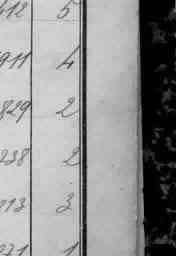 412 5
911 4
829 2
238 2
013 3
271 1